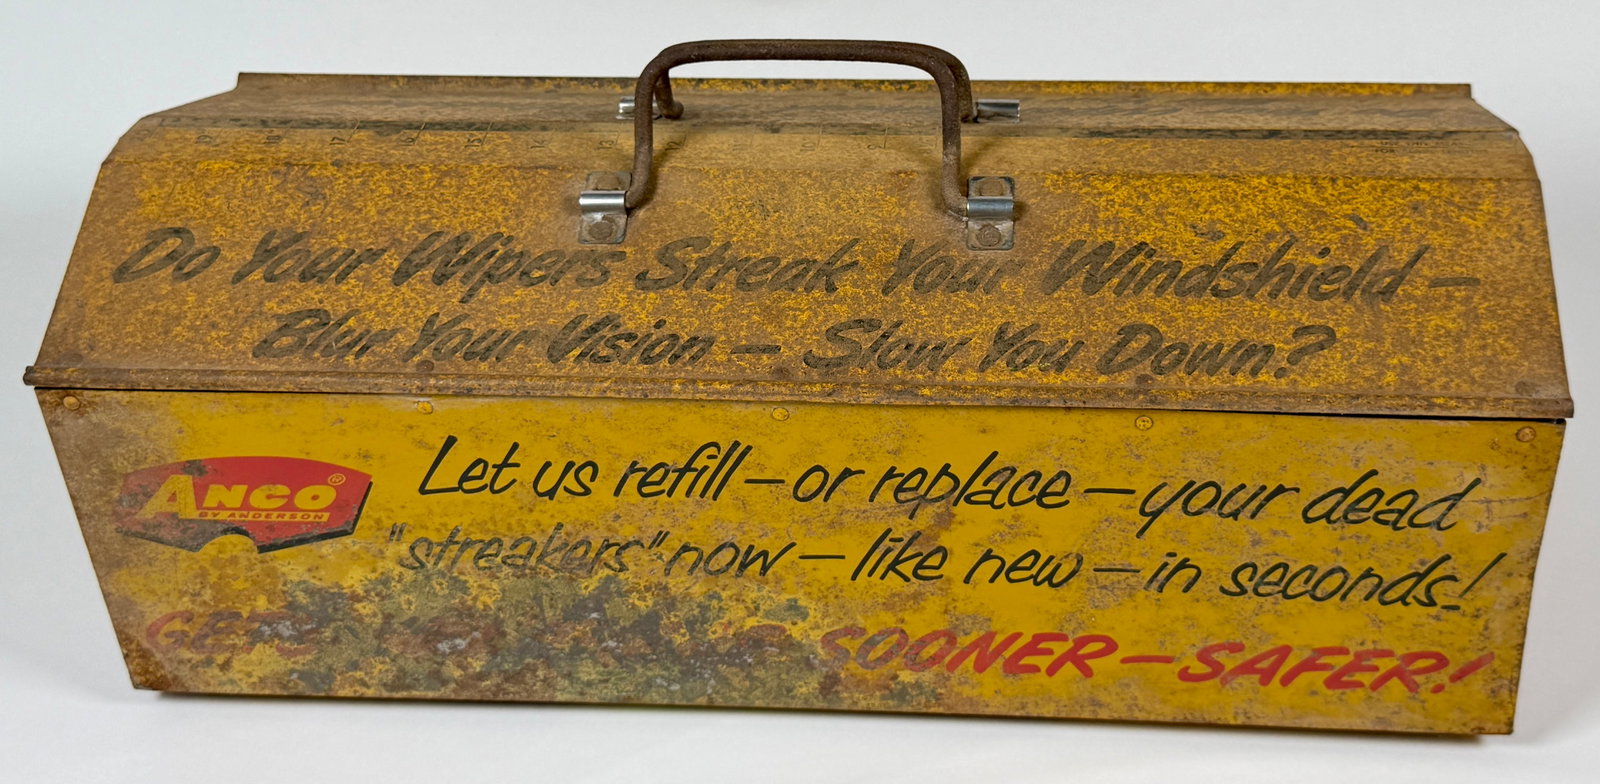 19 18 17 16 15 14 13 12 10 9
Do Your Wipers Streak Your Windshield —
Blur Your Vision — Slow You Down?
ANCO ®
BY ANDERSON
Let us refill — or replace — your dead
"streakers" now — like new — in seconds!
GETS SOONER — SAFER!